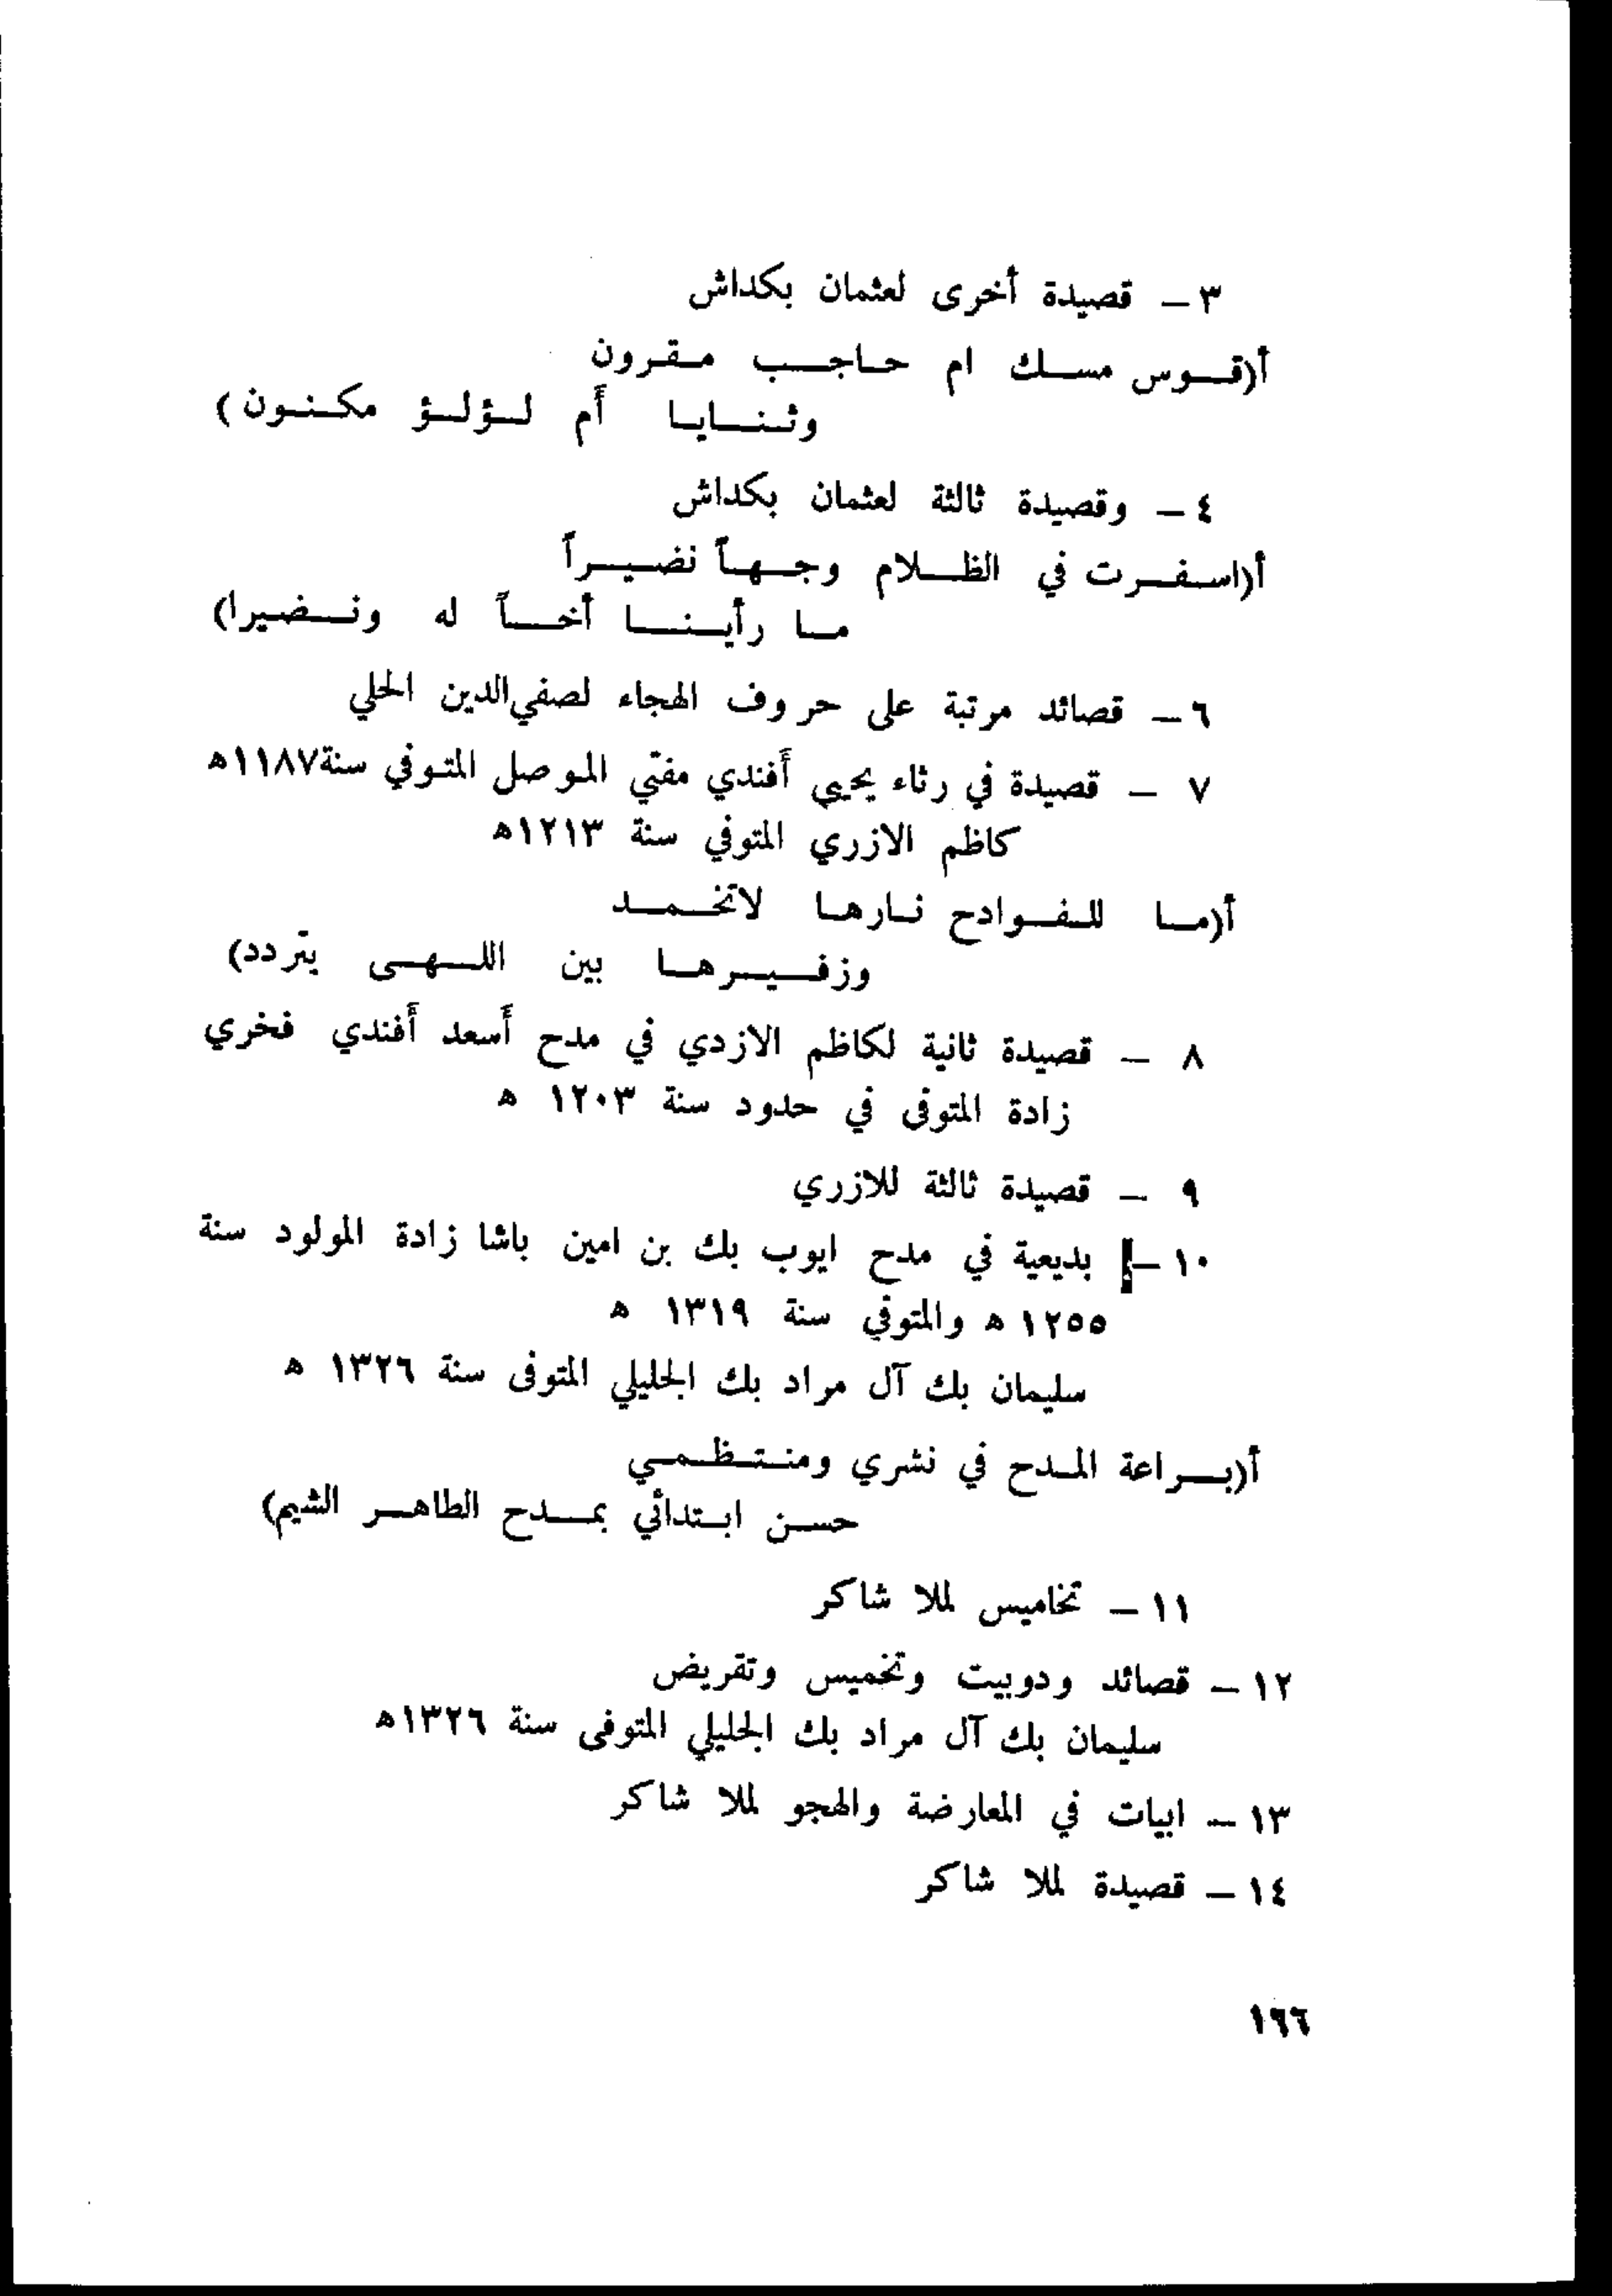 ٣ – قصيدة أخرى لعثمان بكداش
أ(قوس مسك ام حاجب مقرون
وثنايا أم لؤلؤ مكنون)
٤ – وقصيدة ثالثة لعثمان بكداش
أ(اسفرت في الظلام وجهاً نضيراً
ما رأينا أخاً له ونضيرا)
٦ – قصائد مرتبة على حروف الهجاء لصفي الدين الحلي
٧ – قصيدة في رثاء يحيى أفندي مفتي الموصل المتوفي سنة ١١٨٧ه
كاظم الازري المتوفي سنة ١٢١٣ه
أ(ما للفوادح نارها لاتخمد
وزفيرها بين اللهى يتردد)
٨ – قصيدة ثانية لكاظم الازدي في مدح أسعد أفندي فخري
زادة المتوفى في حدود سنة ١٢٠٣ ه
٩ – قصيدة ثالثة للازري
١٠ – بديعية في مدح ايوب بك بن امين باشا زادة المولود سنة
١٢٥٥ ه والمتوفي سنة ١٣١٩ ه
سليمان بك آل مراد بك الجليلي المتوفى سنة ١٣٢٦ ه
أ(براعة المدح في نشري ومنتظمي
حسن ابتدائي بمدح الطاهر الشيم)
١١ – تخاميس لملا شاكر
١٢ – قصائد ودوبيت وتخميس وتقريض
سليمان بك آل مراد بك الجليلي المتوفى سنة ١٣٢٦ه
١٣ – ابيات في المعارضة والهجو لملا شاكر
١٤ – قصيدة لملا شاكر
١٦٦